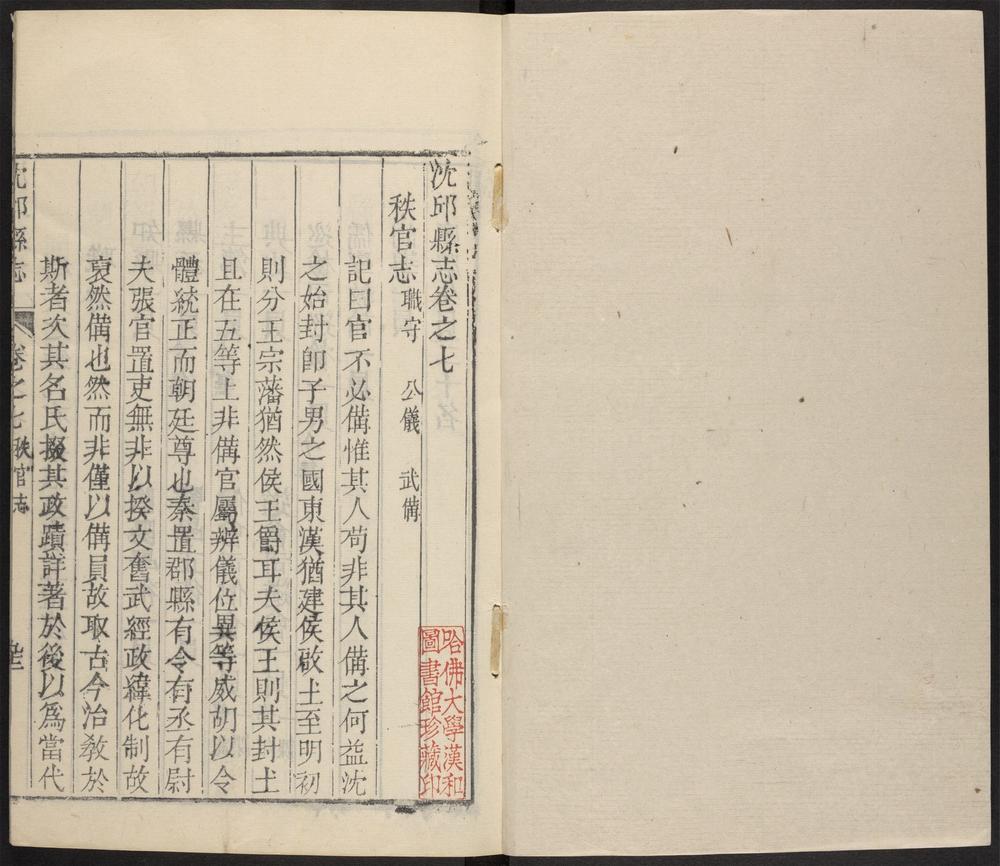 沈邱縣志卷之七
秩官志 職守 公儀 武備
記曰官不必備惟其人苟非其人備之何益沈
之始封卽子男之國東漢猶建侯啟土至明初
則分王宗藩猶然侯王爵耳夫侯王則其封土
且在五等上非備官屬辨儀位異等威胡以令
體統正而朝廷尊也秦置郡縣有令有丞有尉
夫張官置吏無非以揆文奮武經政緯化制故
裒然備也然而非僅以備員故取古今治教於
斯者次其名氏掇其政蹟詳著於後以爲當代
沈邱縣志 卷之七 秩官志
哈佛大學漢和
圖書館珍藏印